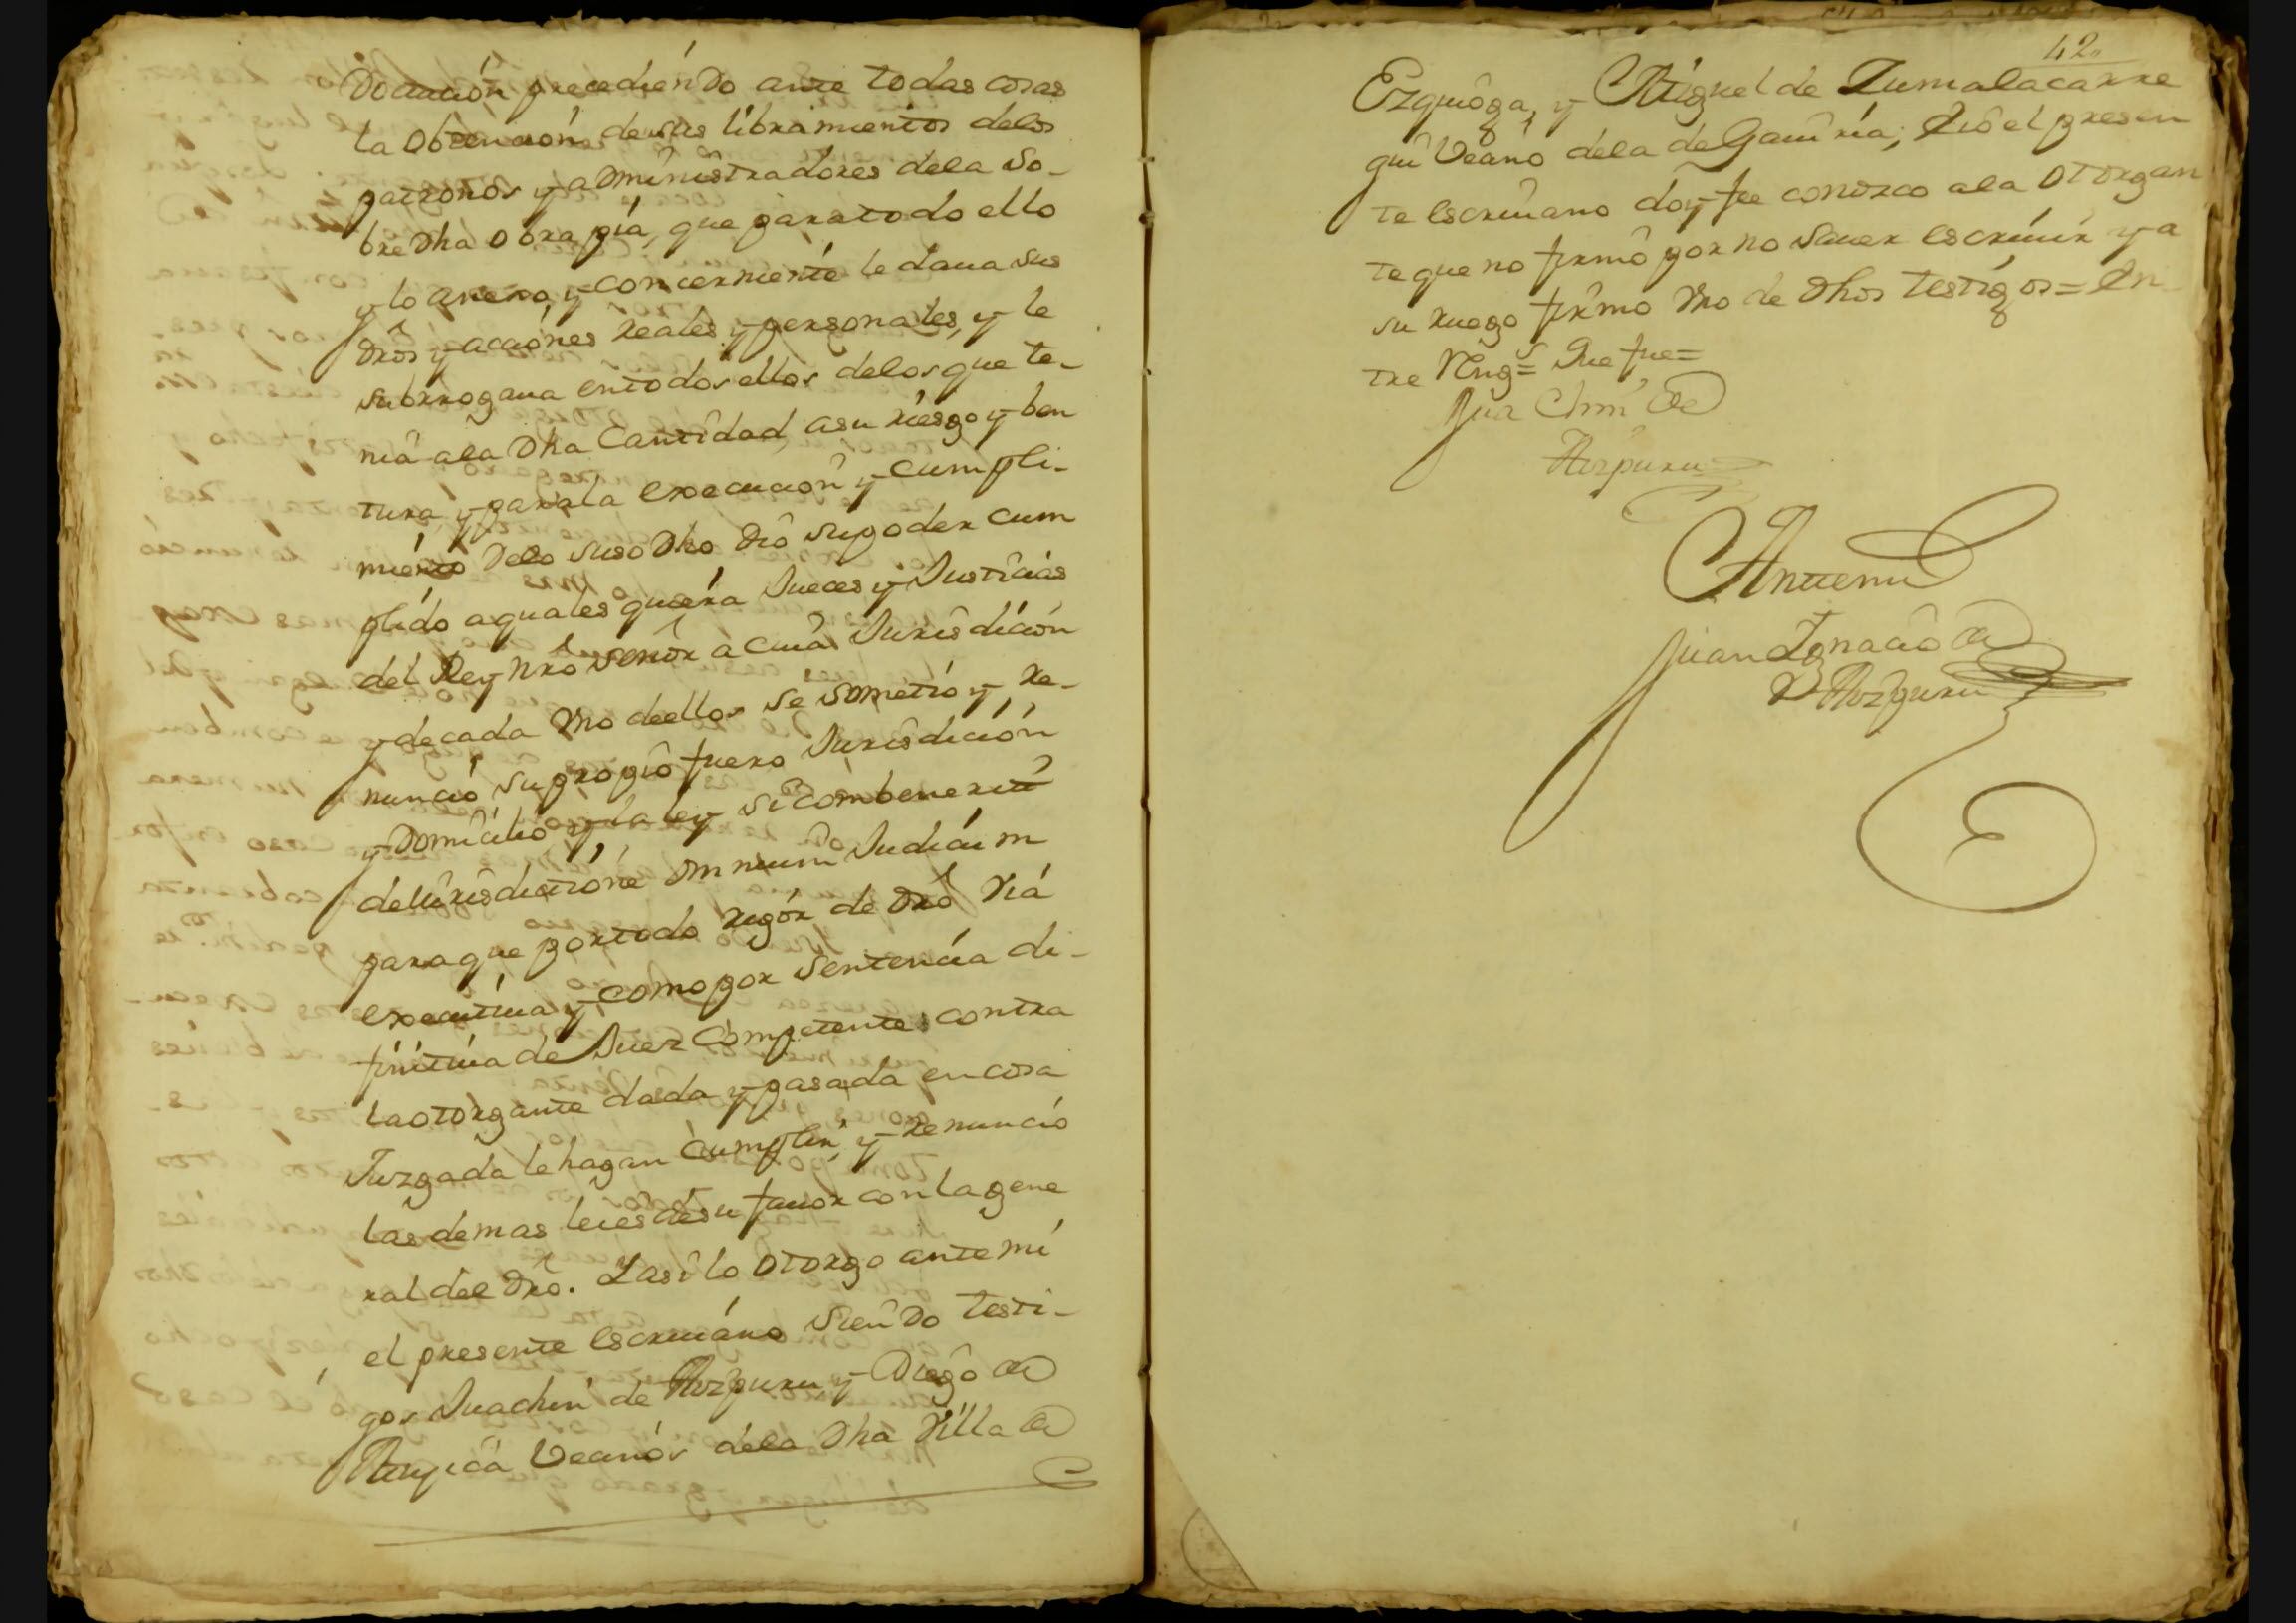 Dotación precediendo ante todas cosas
la Obtención de sus libramientos delos
patronos y administradores dela So-
bre Dha obra pía, que para todo ello
y lo anexo, y concerniente le daua sus
Dros y acciónes Reales y personales, y le
subrrogaua en todos ellos delos que te-
nia ala Dha Cantidad, a su riesgo y ben
tura, y para la execución y cumpli-
miento Delo suso Dho dió su poder cum
plído a qualesquiera Jueces y Justicias
del Rey Nro Señor a cuia Jurisdición
y de cada Vno de ellos se sometió y Re-
nunció su propio fuero Jurisdición
y Domicilio y la ley si combenerit
de Iurisdictióne omnium Iudicum
para que por todo rigór de Dro Viá
executiua y como por Sentencia di-
finitiua de Juez Competente contra
la otorgante dada y pasada en cosa
Juzgada le hagan cumplir, y Renunció
las demas leies de su fauor con la gene
ral del Dro. Y asi lo otorgo ante mi
el presente escriuano Siendo testi-
gos Juachin de Aozpuru y Diego de
Veanos dela Dha Villa de
42
Ezquioga, y Miguel de Zumalacarre
gui Veano dela de Gauiria; Yo el presen
te escriuano doy fee conozco ala otorgan
te que no firmó por no sauer escriuir y a
su ruego firmo Vno de Dhos testigos = En
tre Rengs = Que fue =
Jua Chin de
Aozpuru
Antemi
Juan Ignacio de
Aozpuru